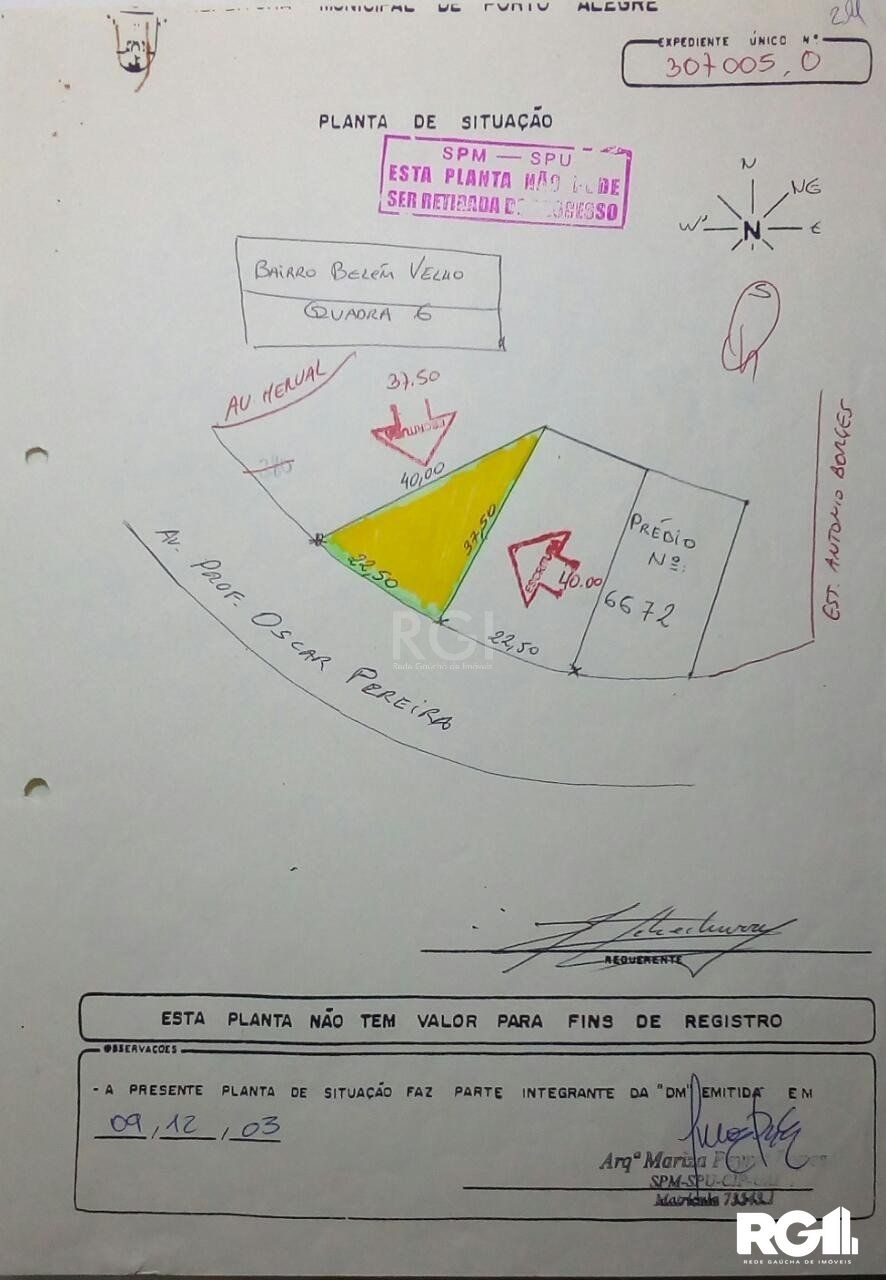 MUNICIPAL DE PORTO ALEGRE
EXPEDIENTE ÚNICO Nº
307005,0
PLANTA DE SITUAÇÃO
SPM — SPU
ESTA PLANTA NÃO PODE
SER RETIRADA DO PROCESSO
N
NE
W
N
E
S
BAIRRO BELÉM VELHO
QUADRA 6
37.50
AV HERVAL
ESCRITURA
40,00
EST. ANTONIO BORGES
37,50
22,50
ESCRITURA
40.00
PRÉDIO
Nº:
6672
22,50
AV. PROF. OSCAR PEREIRA
RGI
Rede Gaúcha de Imóveis
REQUERENTE
ESTA PLANTA NÃO TEM VALOR PARA FINS DE REGISTRO
OBSERVAÇÕES
- A PRESENTE PLANTA DE SITUAÇÃO FAZ PARTE INTEGRANTE DA "DM" EMITIDA EM
09,12,03
Arqª Mariza
SPM-SPU-
Matrícula
RGI
REDE GAÚCHA DE IMÓVEIS